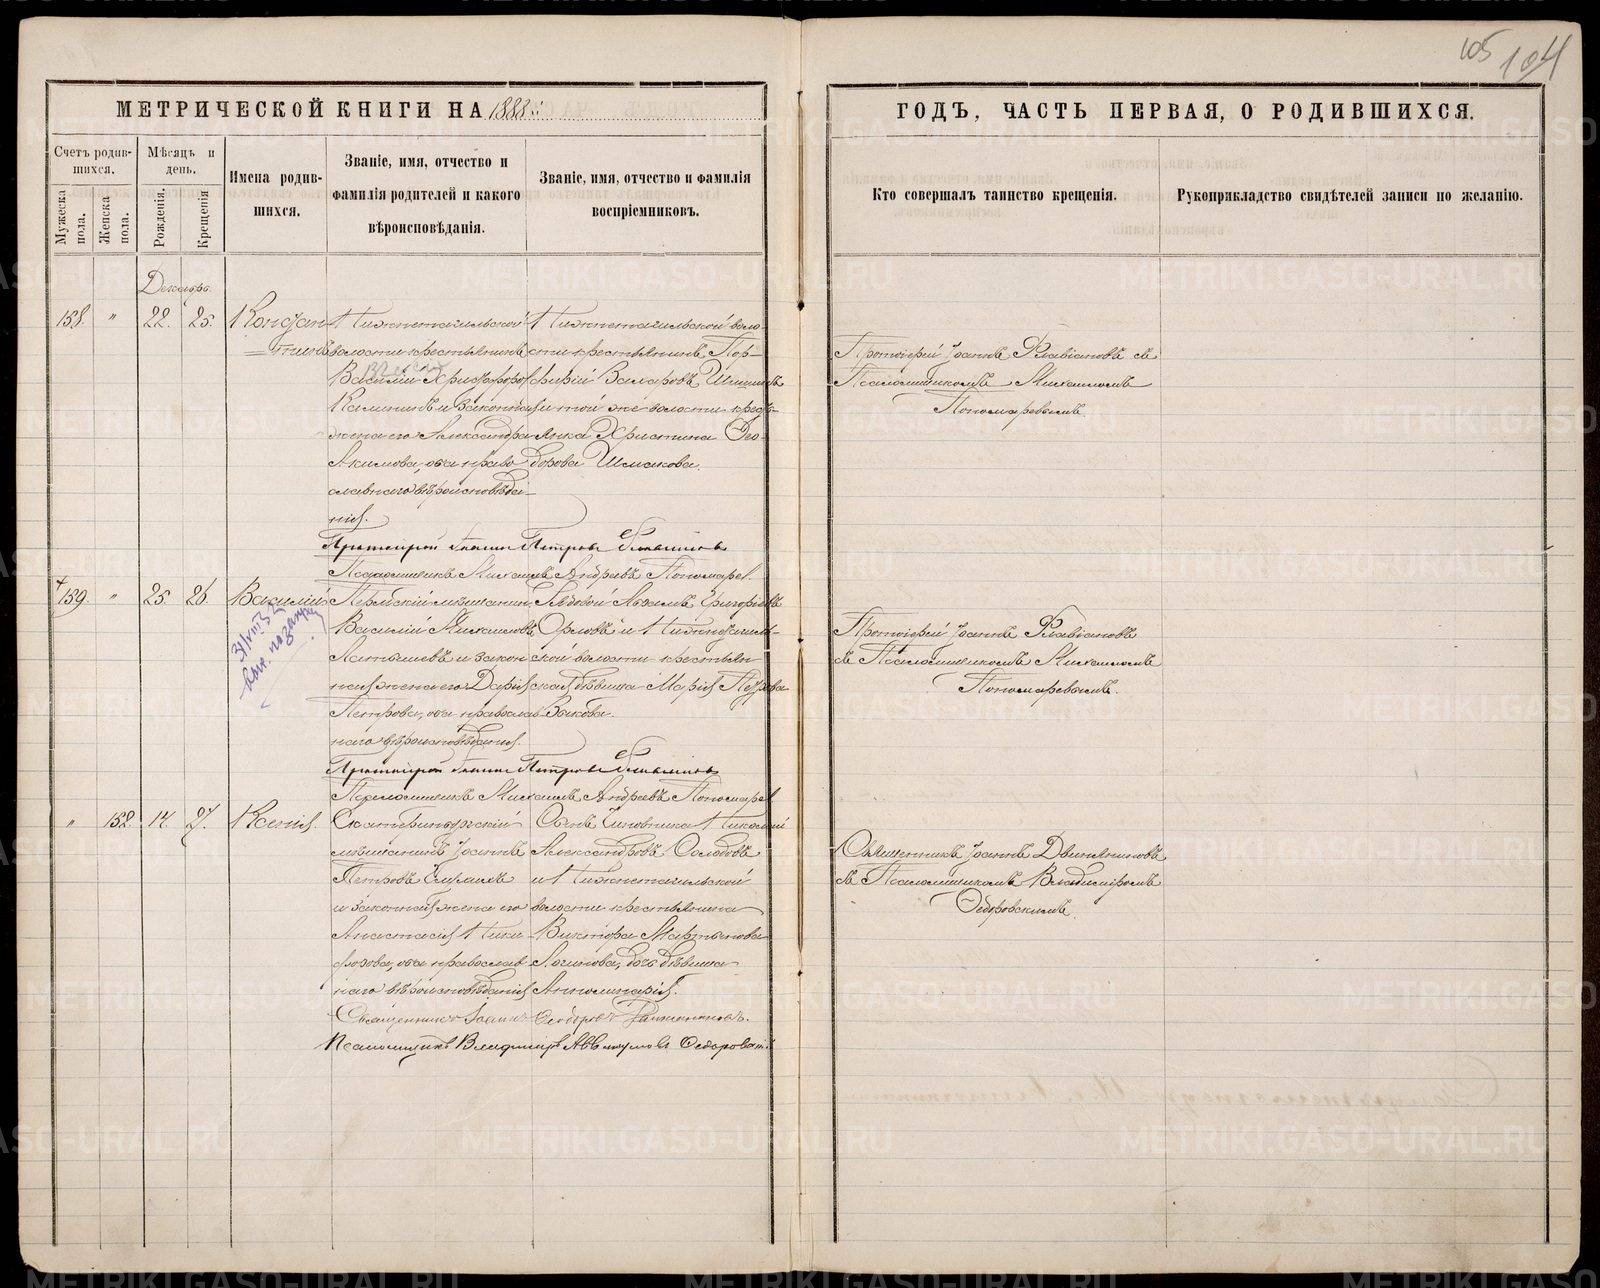 105 104
МЕТРИЧЕСКОЙ КНИГИ НА 1888
ГОДЪ, ЧАСТЬ ПЕРВАЯ, О РОДИВШИХСЯ.
Счетъ родив-
шихся.
Мужеска
пола.
Женска
пола.
Мѣсяцъ и
день.
Рожденія.
Крещенія
Имена родив-
шихся.
Званіе, имя, отчество и
фамилія родителей и какого
вѣроисповѣданія.
Званіе, имя, отчество и фамилія
воспріемниковъ.
Кто совершалъ таинство крещенія.
Рукоприкладство свидѣтелей записи по желанію.
Декабрь
158. " 22. 25. Констан-
тинъ
Нижнетагильской
волости крестьянинъ
Василій Христофоров
Калининъ и законная
жена его Александра
Акимова, оба право
славнаго вѣроисповѣда-
нія.
Нижнетагильской воло-
сти крестьянинъ Пор-
фирій Захаровъ
и той же волости крестъ-
янка Христина Фео-
дорова
Протоіерей Іоаннъ Флавіановъ съ
Псаломщикомъ Михаиломъ
Пономаревымъ.
Протоіерей Іоаннъ Петровъ Флавіановъ
Псаломщикъ Михаилъ Андреевъ Пономарев.
159. " 25. 26. Василій
31/VIII 52
Пермскій мѣщанинъ
Василій Михаиловъ
Латышевъ и закон
ная жена его Дарія
Петрова, оба православ
наго вѣроисповѣданія.
Рядовой Григорьевъ
Орловъ и Нижнетагиль-
ской волости крестьян
ская дѣвица Марія Петрова
Зыкова.
Протоіерей Іоаннъ Флавіановъ
съ Псаломщикомъ Михаиломъ
Пономаревымъ.
Протоіерей Іоаннъ Петровъ Флавіановъ
Псаломщикъ Михаилъ Андреевъ Пономарев
" 152. 14. 27. Ксенія.
Екатеринбургскій
мѣщанинъ Іоаннъ
Петровъ
и законная жена его
Анастасія Ники-
форова, оба православ
наго вѣроисповѣданія
Сынъ Чиновника Николай
Александровъ Солодовъ
и Нижнетагильской
волости крестьянина
Виктора Мартынова
Логинова, дочь дѣвица
Апполинарія.
Священникъ Іоаннъ
съ Псаломщикомъ Владиміромъ
Федоровскимъ.
Священникъ Іоаннъ
Псаломщикъ Владиміръ Аввакумовъ Федоровскій